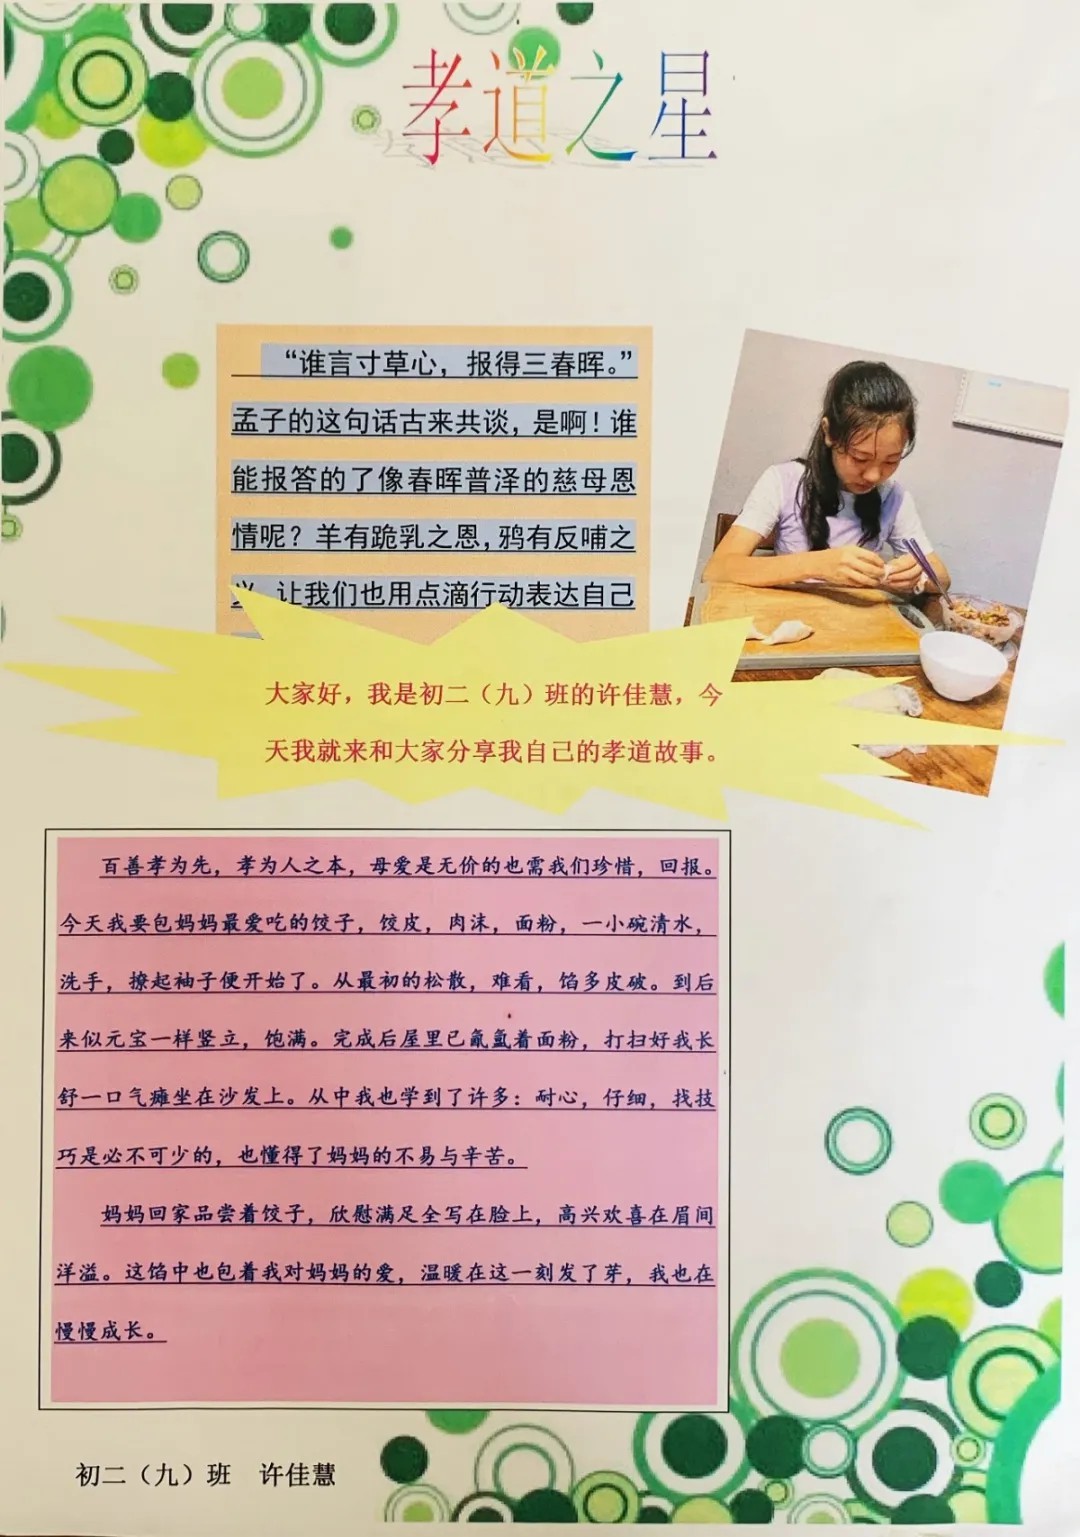 孝道之星
“谁言寸草心，报得三春晖。”
孟子的这句话古来共谈，是啊！谁
能报答的了像春晖普泽的慈母恩
情呢？羊有跪乳之恩，鸦有反哺之
让我们也用点滴行动表达自己
大家好，我是初二（九）班的许佳慧，今
天我就来和大家分享我自己的孝道故事。
百善孝为先，孝为人之本，母爱是无价的也需我们珍惜，回报。
今天我要包妈妈最爱吃的饺子，饺皮，肉沫，面粉，一小碗清水，
洗手，撩起袖子便开始了。从最初的松散，难看，馅多皮破。到后
来似元宝一样竖立，饱满。完成后屋里已氤氲着面粉，打扫好我长
舒一口气瘫坐在沙发上。从中我也学到了许多：耐心，仔细，找技
巧是必不可少的，也懂得了妈妈的不易与辛苦。
妈妈回家品尝着饺子，欣慰满足全写在脸上，高兴欢喜在眉间
洋溢。这馅中也包着我对妈妈的爱，温暖在这一刻发了芽，我也在
慢慢成长。
初二（九）班　许佳慧